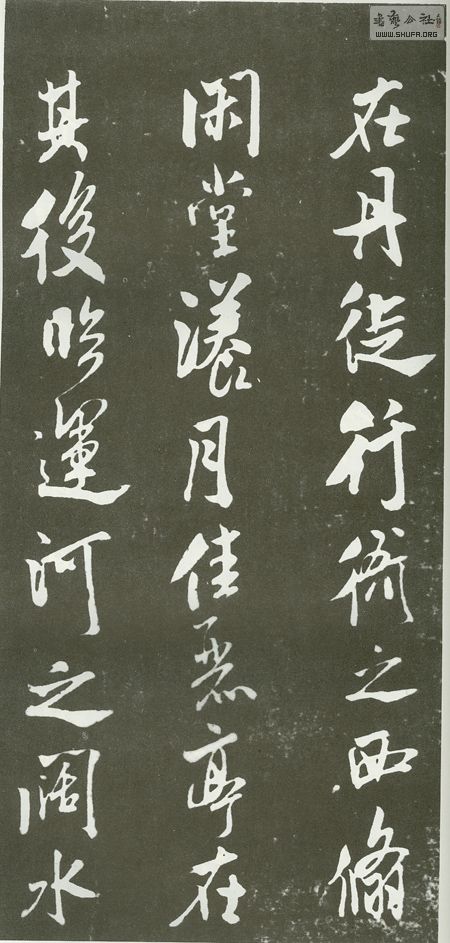 在丹徒行衙之西翛
閑堂漾月佳麗亭在
其後臨運河之闊水
書藝公社
WWW.SHUFA.ORG